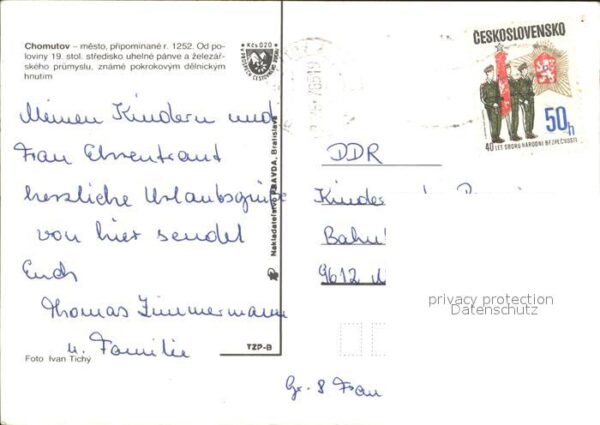 Chomutov – město, připomínané r. 1252. Od po-
loviny 19. stol. středisko uhelné pánve a železář-
ského průmyslu, známé pokrokovým dělnickým
hnutím
Kčs 0,20
Meinen Kindern und
Frau Ehrentraut
herzliche Urlaubsgrüße
von hier sendet
Euch
Thomas Zimmermann
u. Familie
Foto Ivan Tichý
TZP-B
Nakladatelstvo PRAVDA, Bratislava
ČESKOSLOVENSKO
50h
40 LET SBORU NÁRODNÍ BEZPEČNOSTI
DDR
Kinder
Bahn
9612
privacy protection
Datenschutz
Gr. 8 Frau